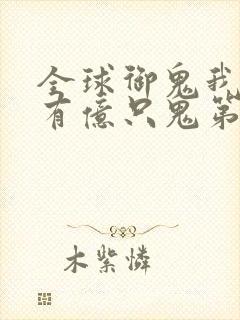 全球御鬼我
有億只鬼第
木紫憐